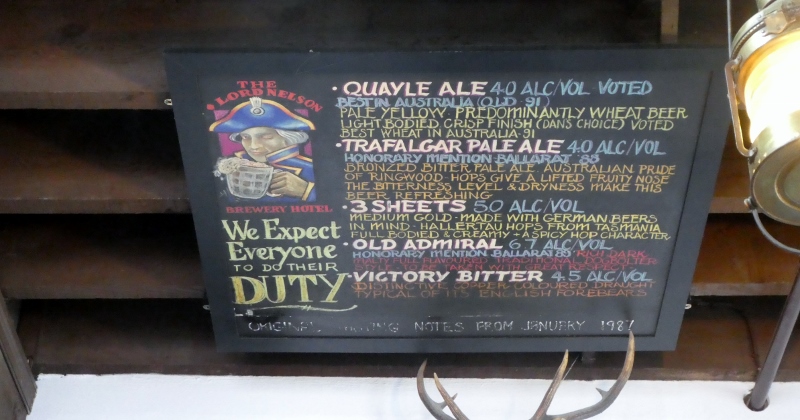 THE
LORD NELSON
BREWERY HOTEL
We Expect
Everyone
TO DO THEIR
DUTY
• QUAYLE ALE 4.0 ALC/VOL VOTED
BEST IN AUSTRALIA (QLD 91)
PALE YELLOW. PREDOMINANTLY WHEAT BEER
LIGHT BODIED CRISP FINISH (DANS CHOICE) VOTED
BEST WHEAT IN AUSTRALIA·91
• TRAFALGAR PALE ALE 4.0 ALC/VOL
HONORARY MENTION BALLARAT 88
BRONZED BITTER PALE ALE AUSTRALIAN PRIDE
OF RINGWOOD·HOPS GIVE A LIFTED FRUITY NOSE
THE BITTERNESS LEVEL & DRYNESS MAKE THIS
BEER REFRESHING.
• 3 SHEETS 5.0 ALC/VOL
MEDIUM GOLD · MADE WITH GERMAN BEERS
IN MIND · HALLERTAU HOPS FROM TASMANIA
FULL BODIED & CREAMY + A SPICY HOP CHARACTER
• OLD ADMIRAL 6.7 ALC/VOL
HONORARY MENTION BALLARAT 88 RICH DARK
MALTY FULL FLAVOURED TRADITIONAL
WITH GREAT
• VICTORY BITTER 4.5 ALC/VOL
DISTINCTIVE COPPER COLOURED DRAUGHT
TYPICAL OF ITS ENGLISH FOREBEARS
ORIGINAL NOTES FROM JANUARY 1987